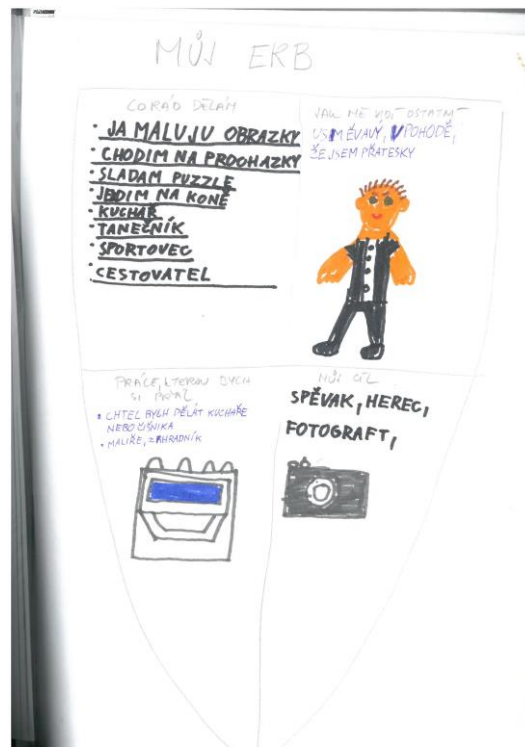 MŮJ ERB
CO RÁD DĚLÁM
· JA MALUJU OBRAZKY
· CHODIM NA PROCHAZKY
· SLADAM PUZZLE
· JEDIM NA KONĚ
· KUCHAŘ
· TANEČNÍK
· SPORTOVEC
· CESTOVATEL
JAK MĚ VIDÍ OSTATNÍ
USMĚVAVY, V POHODĚ,
ŽE JSEM PŘATESKY
PRÁCE, KTEROU BYCH
SI PŘÁL
· CHTEL BYCH DĚLÁT KUCHAŘE
NEBO ČIŠNIKA
· MALIŘE, ZAHRADNÍK
MŮJ CÍL
SPĚVAK, HEREC,
FOTOGRAFT,